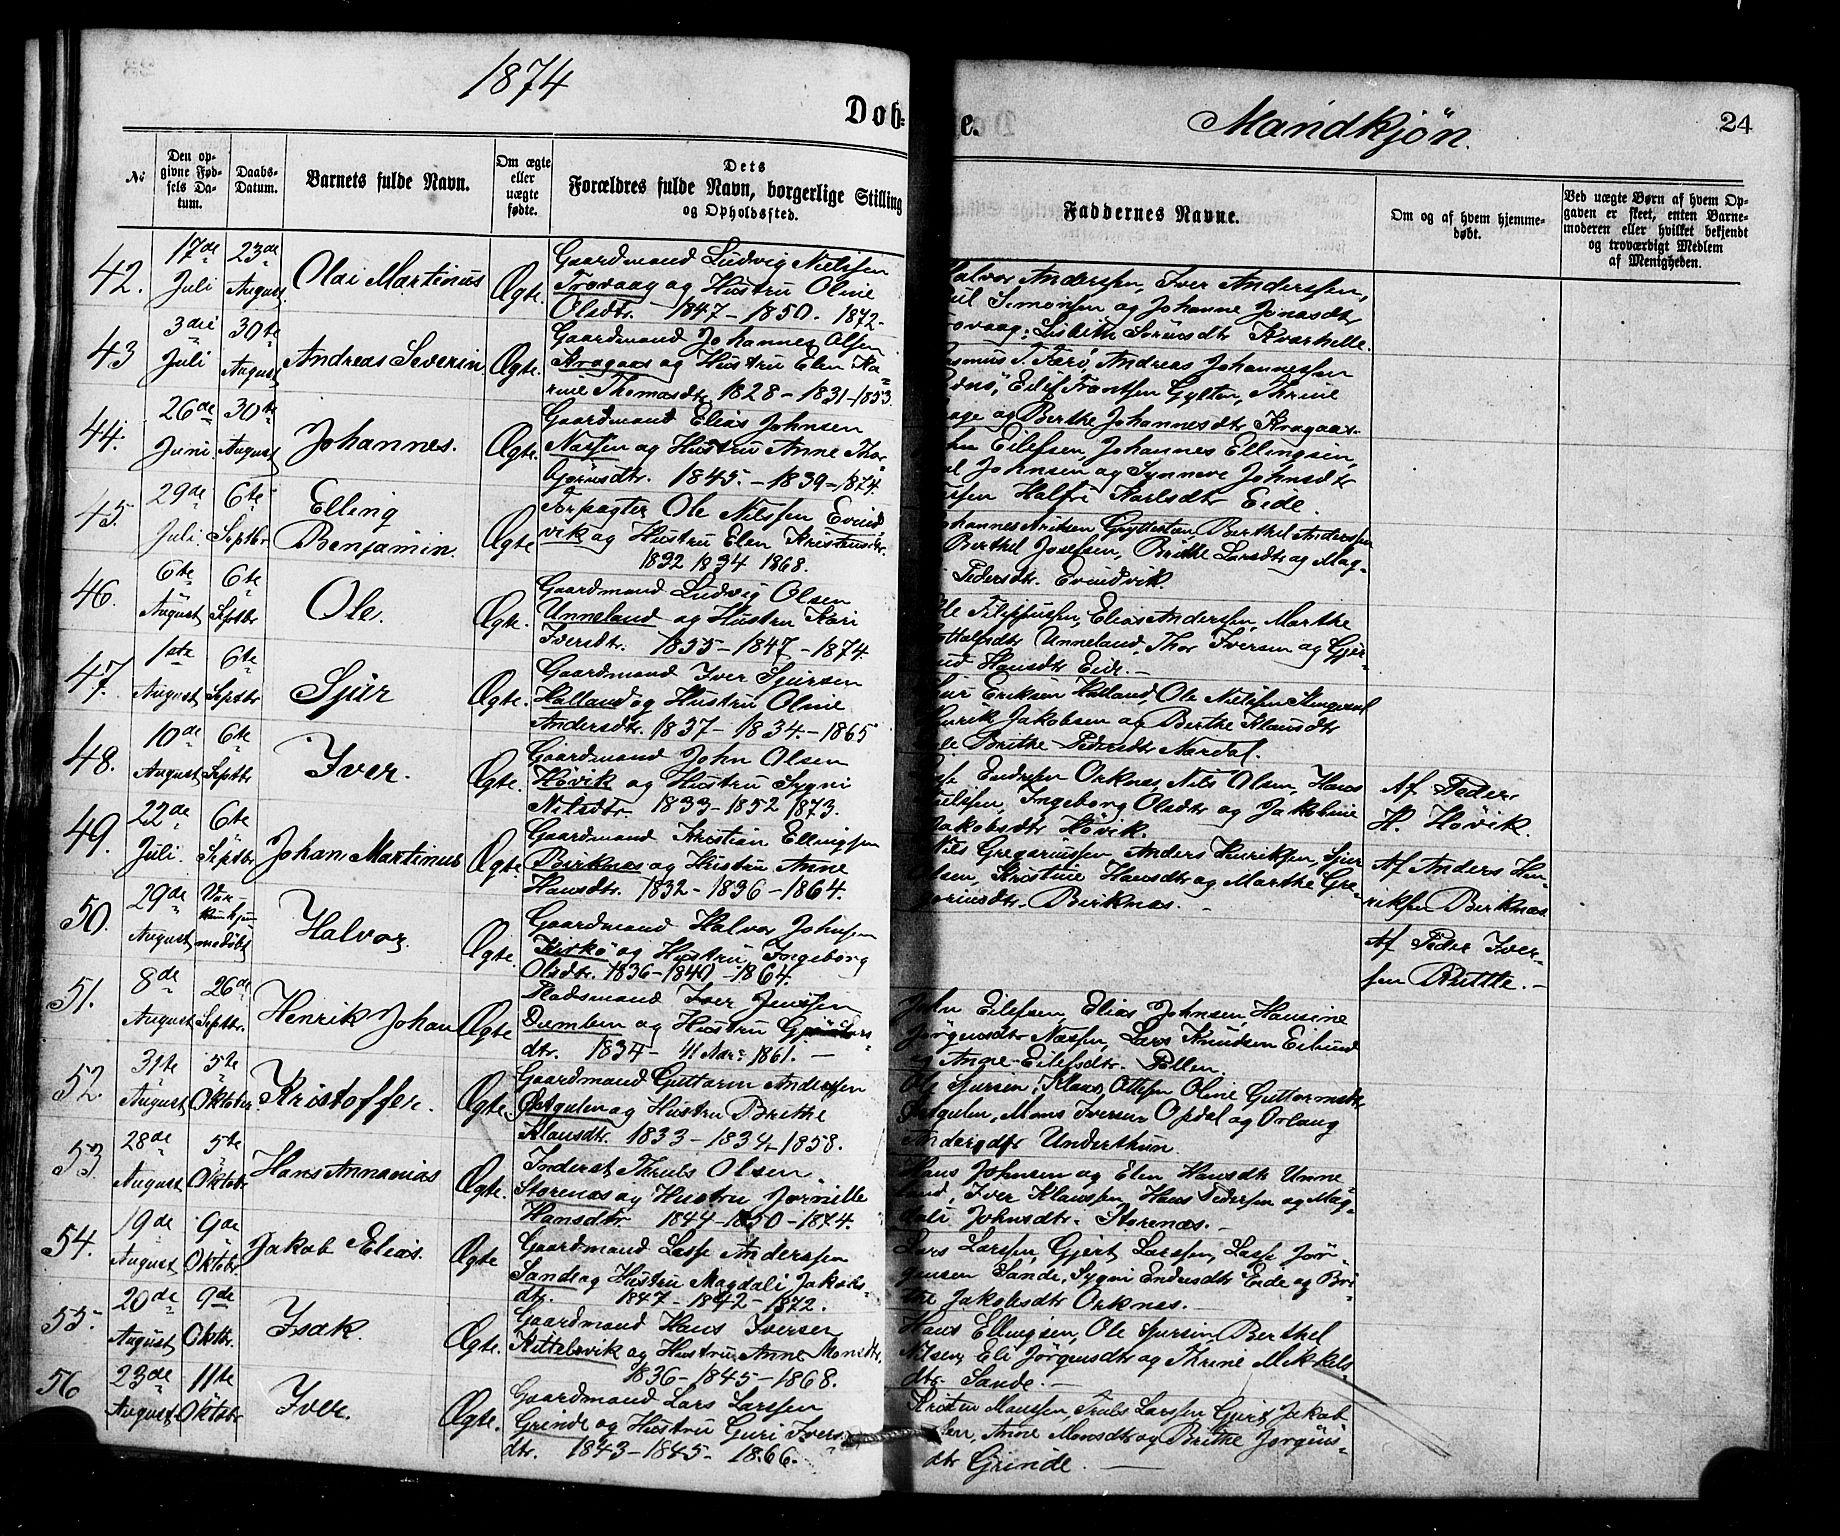 1874
Døbte.
Mandkjøn.
24
No
Den opgivne Fødsels Datum.
Daabs-Datum.
Barnets fulde Navn.
Om ægte eller uægte fødte.
Dets Forældres fulde Navn, borgerlige Stilling og Opholdssted.
Faddernes Navne.
Om og af hvem hjemmedøbt.
Ved uægte Børn af hvem Opgaven er skeet, enten Barnemoderen eller hvilket bekjendt og troværdigt Medlem af Menigheden.
42. 17de Juli 23de August Olai Martinus Ægte.
Gaardmand Ludvig Nielssen
Trovaag og Hustru Oline
Olsdtr. 1847 - 1850. 1872.
Halvor Anderssen, Iver Anderssen,
Simonsen og Johanne Jonasdtr
Kvarhelle.
43 3die Juli 30te August Andreas Severin Ægte.
Gaardmand Johannes Olsen
Kragaas og Hustru Elen Ka-
rine Thomasdtr 1828 - 1831 - 1853.
Rasmus T. Færø, Andreas Johannessen
Eilef Gylten, Thrine
og Berthe Johannesdtr Kragaas.
44. 26de Juni 30te August Johannes. Ægte.
Gaardmand Elias Johnsen
Næssen og Hustru Anne Thor-
bjørnsdtr. 1845. - 1839 - 1874.
John Eilefsen, Johannes Ellingsen,
Johnsen og Synneve Johnsdtr
Karlsdtr Eide.
45. 29de Juli. 6te Septbr Elling Benjamin. Ægte
Forpagter Ole Nilssen Evind
vik og Hustru Elen Kristensdtr.
1832 1834 1868.
Johannes Gryttestøn, Berthel Anderssen
Berthel Josefsen, Brithe Larsdtr og Mag-
Pedersdtr. Evindvik.
46. 6te August 6te Septbr Ole. Ægte.
Gaardmand Ludvig Olsen
Unneland og Hustru Kari
Iversdtr. 1855 - 1847 - 1874.
Ole Filippussen, Elias Andersen, Marthe
Unneland, Thor Iversen og Gjer-
trud Hansdtr Eide. -
47. 1ste August 6te Septbr Sjur Ægte.
Gaardmand Iver Sjursen
Halland og Hustru Oline
Andersdtr. 1837 - 1834. - 1865
Sjur Eriksen Halland, Ole Nielssen
Henrik Jakobsen og Berthe Klausdtr
Brithe Pedersdtr Nordal.
48. 10de August 6te Septbr Iver. Ægte.
Gaardmand John Olsen
Høvik og Hustru Sygni
Nilsdtr. 1833 - 1852 1873.
Endresen Orknæs, Nils Olsen, Hans
Ingeborg Olsdtr og Jakobine
Jakobsdtr Høvik.
Af Peder
H. Høvik.
49. 22de Juli. 6te Septbr Johan Martinus Ægte.
Gaardmand Kristian Ellingsen
Birknæs og Hustru Anne
Hansdtr. 1832 - 1836 - 1864.
Nils Gregoriussen, Anders Henriksen, Sjur
Olsen, Kristine Hansdtr og Marthe Gre-
goriusdtr. Birknæs. -
Af Anders Hen-
riksen Birknæs.
50. 29de August Var kun hjem medøbt Halvor. Ægte.
Gaardmand Halvor Johnsen
Kirkø og Hustru Ingeborg
Olsdtr. 1836 - 1840 - 1864.
Af Peder Iver-
sen -
51. 8de August 26de Septbr. Henrik Johan Ægte
Pladsmand Iver Jenssen
Dumben og Hustru
dtr. 1834 - 1861. -
John Eilefsen, Elias Johnsen, Hansine
Jørgensdtr Næssen, Lars Knudsen Eilund
og Anne Eilefsdtr. Pollen.
52. 31te August 5te Oktober Kristoffer. Ægte.
Gaardmand Guttorm Anderssen
Østgulen og Hustru Brithe
Klausdtr. 1833 - 1834 - 1858.
Ole Sjursen, Klaus Ottesen Oline Guttormsdtr
Østgulen, Mons Iversen Opdal og Orlaug
Andersdtr Underthun.
53. 28de August 5te Oktobr Hans Annanias Ægte.
Inderst Truls Olsen
Storenæs og Hustru Jørnille
Hansdtr 1844 - 1850 - 1874.
Hans Johnsen og Elen Hansdtr Unne-
land, Iver Klaussen, Hans Pedersen og Mag-
dali Johnsdtr. Storenæs. -
54. 19de August 9de Oktobr. Jakob Elias. Ægte
Gaardmand Lasse Anderssen
Sande og Hustru Magdali Jakobs-
dtr. 1847 - 1842 - 1872.
Lars Larssen, Gjert Larssen, Lasse Jør-
gensen Sande, Sygni Endresdtr Eide og Bri-
the Jakobsdtr Orknæs. -
55. 20de August 9de Oktbr. Isak. Ægte.
Gaardmand Hans Iversen
Kittelsvik og Hustru Anne Monsdtr.
1836 - 1845 - 1868.
Hans Ellingsen, Ole Sjursen Berthel
Nilsen, Eli Jørgensdtr og Thrine Mikkels-
dtr. Sande. -
56 23de August 11te Oktobr Iver. Ægte.
Gaardmand Lars Larssen
Grinde og Hustru Guri Ivers-
dtr. 1843 - 1845 - 1866.
Kristen Monssen, Truls Larssen Gjert Jakob-
sen, Anne Monsdtr og Brithe Jørgens-
dtr Grinde. -